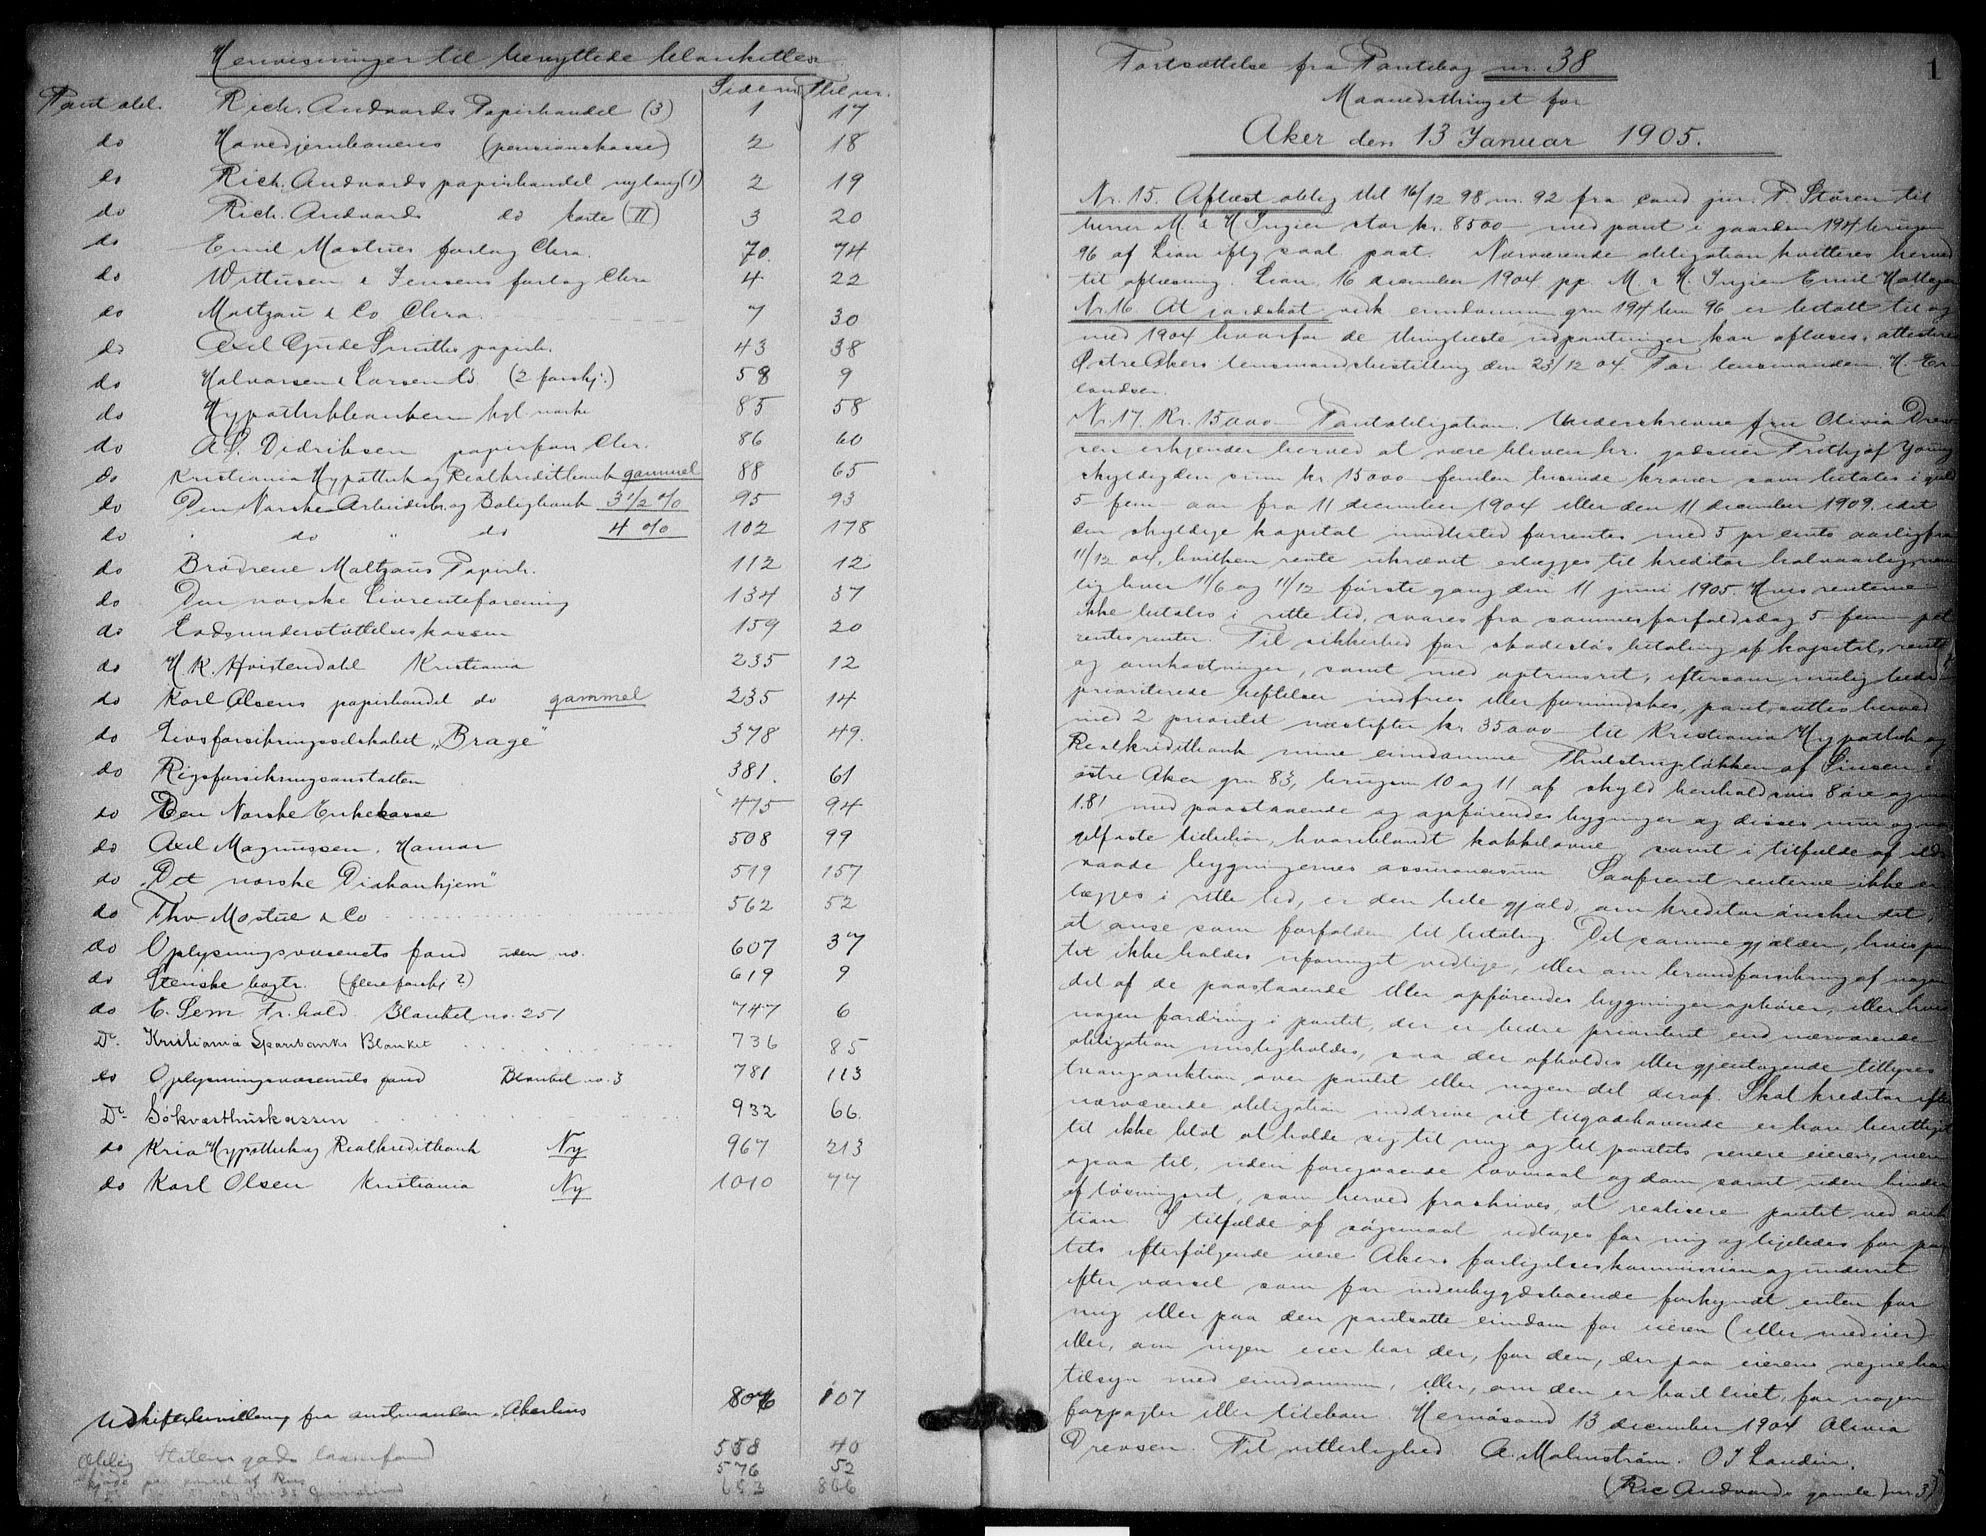 Henvisninger til benyttede blanketter
Side nr. Til nr.
Pant obl. Rich. Andvords Papirhandel (3) 1 17
do Hovedjernbanens (pensionskasse) 2 18
do Rich. Andvords papirhandel nylang (1) 2 19
do Rich. Andvords do korte (II) 3 20
do Emil Mostues forlag Chra. 70. 74
do Wittusen & Jensens forlag Chra 4 22
do Maltzau & Co Chra. 7 30
do Axel Gude Smiths papirh. 43 38
do Halvorsen & Larsen Ld. (2 forskj.) 58 9
do Hypothekbanken kgl norske 85 58
do A. L. Didriksen papirforr Chr. 86 60
do Kristiania Hypothek og Realkreditbank gammel 88 65
do Den Norske Arbeiderbr. og Boligbank 3 1/2 % 95 93
do " do " do 4 % 102 178
do Brödrene Maltzaus Papirh. 112 12
do Den norske Livrenteforening 134 37
do Lodsunderstöttelseskassen 159 20
do H. K. Hvistendahl Kristiania 235 12
do Karl Olsens papirhandel do gammel 235 14
do Livsforsikringsselskabet „Brage" 378 49.
do Rigsforsikringsanstalten 381. 61
do Den Norske Enkekasse 475 94
do Axel Magnussen, Hamar 508 99
do „Det norske Diakonhjem" 519 157
do Thv Mostue & Co 562 52
do Oplysningsvæsenets fond uden no. 607 37
do Stenske bogtr. (flere forskj ?) 619 9
do E. Sem Fr.hald. Blanket no. 251 747 6
Do. Kristiania Sparebanks Blanket 736 85
do Oplysningsvæsenets fond Blanket no. 3 781 113
Do. Sökværthuskassen 932 66.
do Kria Hypothek og Realkreditbank Ny 967 213
do Karl Olsen Kristiania Ny 1010 77
Udskiftebevilling fra amtmanden i Akershus 806 107
Oblig Statens gods laanefond 558 40
576 52
653 866
1
Fortsættelse fra Pantebog nr. 38
Maanedsthinget for
Aker den 13 Januar 1905.
Nr. 15. Aflæst oblig thl 16/12 98 nr. 92 fra cand. jur. P. Støren til
herrer M & H Ingier stor kr. 8500 med pant i gaarden 194 brugsn
96 af Lian iflg saal paat. Nærværende obligation kvitteres herved
til aflæsning. Lian, 16 december 1904 pp M. & H. Ingier Emil
Nr. 16 At jordskat vedk. eiendommen gnr 194 bnr 96 er betalt til og
med 1904 hvorfor de thinglæste udpantninger kan aflæses, attesteres
Østre Akers lensmandsbestilling den 23/12 04. For lensmanden H. Er-
landsen.
Nr. 17. Kr. 15000 Pantobligation. Underskrevne fru Olivia Drev-
sen erkjender herved at være bleven hr. godseier Frithjof Young
skyldig den sum kr 15000 femten tusinde kroner som betales i guld
5 - fem - aar fra 11 december 1904 eller den 11 december 1909. idet
den skyldige kapital imidlertid forrentes med 5 pr cents aarlig fra
11/12 04, hvilken rente ukrævet erlægges til kreditor halvaarlig, nem-
lig hver 11/6 og 11/12 første gang den 11 juni 1905. Hvis renterne
ikke betales i rette tid, svares fra sammes forfaldsdag 5 - fem - pct
rentesrenter. Til sikkerhed for skadesløs betaling af kapital, renter
og omkostninger, samt med optrinsret, eftersom mulig bedre
prioriterede heftelser indfries eller formindskes, pantsættes herved
med 2 prioritet næstefter kr. 35000 til Kristiania Hypothek og
Realkreditbank mine eiendomme Thulstrupløkken af Sinsen i
østre Aker gnr 83, brugsnr 10 og 11 af skyld henholdsvis 8 øre og mrk
1.81 med paastaaende og opførendes bygninger og disses mur og na-
gelfaste tilbehør, hvoriblandt kakkelovne samt i tilfælde af ilds-
vaade bygningernes assurancesum. Saafremt renterne ikke er-
lægges i rette tid, er den hele gjæld, om kreditor ønsker det,
at anse som forfalden til betaling. Det samme gjælder, hvis pan-
tet ikke holdes uforringet vedlige, eller om brandforsikring af nogen
del af de paastaaende eller opførendes bygninger ophører, eller hvis
nogen fordring i pantet, der er bedre prioritert end nærværende
obligation misligholdes, saa der afholdes eller gjentagende tillyses
tvangsauktion over pantet eller nogen del deraf. Skal kreditor efter
nærværende obligation inddrive sit tilgodehavende er han berettiget
til ikke blot at holde sig til mig og til pantets senere eiere, men
ogsaa til, uden foregaaende lovmaal og dom samt uden hinder
af løsningsret, som herved fraskrives, at realisere pantet ved auk-
tion. I tilfælde af søgsmaal vedtages for mig og ligeledes for pan-
tets efterfølgende eiere Akers forligelseskommission og underret
efter varsel som for indenbygdsboende forkyndt enten for
mig eller paa den pantsatte eiendom for eieren (eller medeier)
eller, om ingen eier bor der, for den, der paa eierens vegne har
tilsyn med eiendommen, eller, om den er bortleiet, for nogen
forpagter eller leieboer. Hernösand 13 december 1904 Olivia
Drevsen. Til vitterlighed A. Malmström. O J Landin.
(Ric Andvords gamle nr 3)